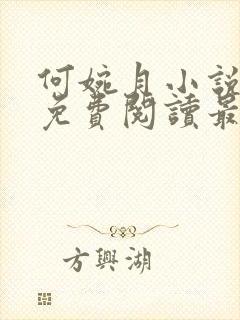 何婉月小說
免費閱讀最
方興湖